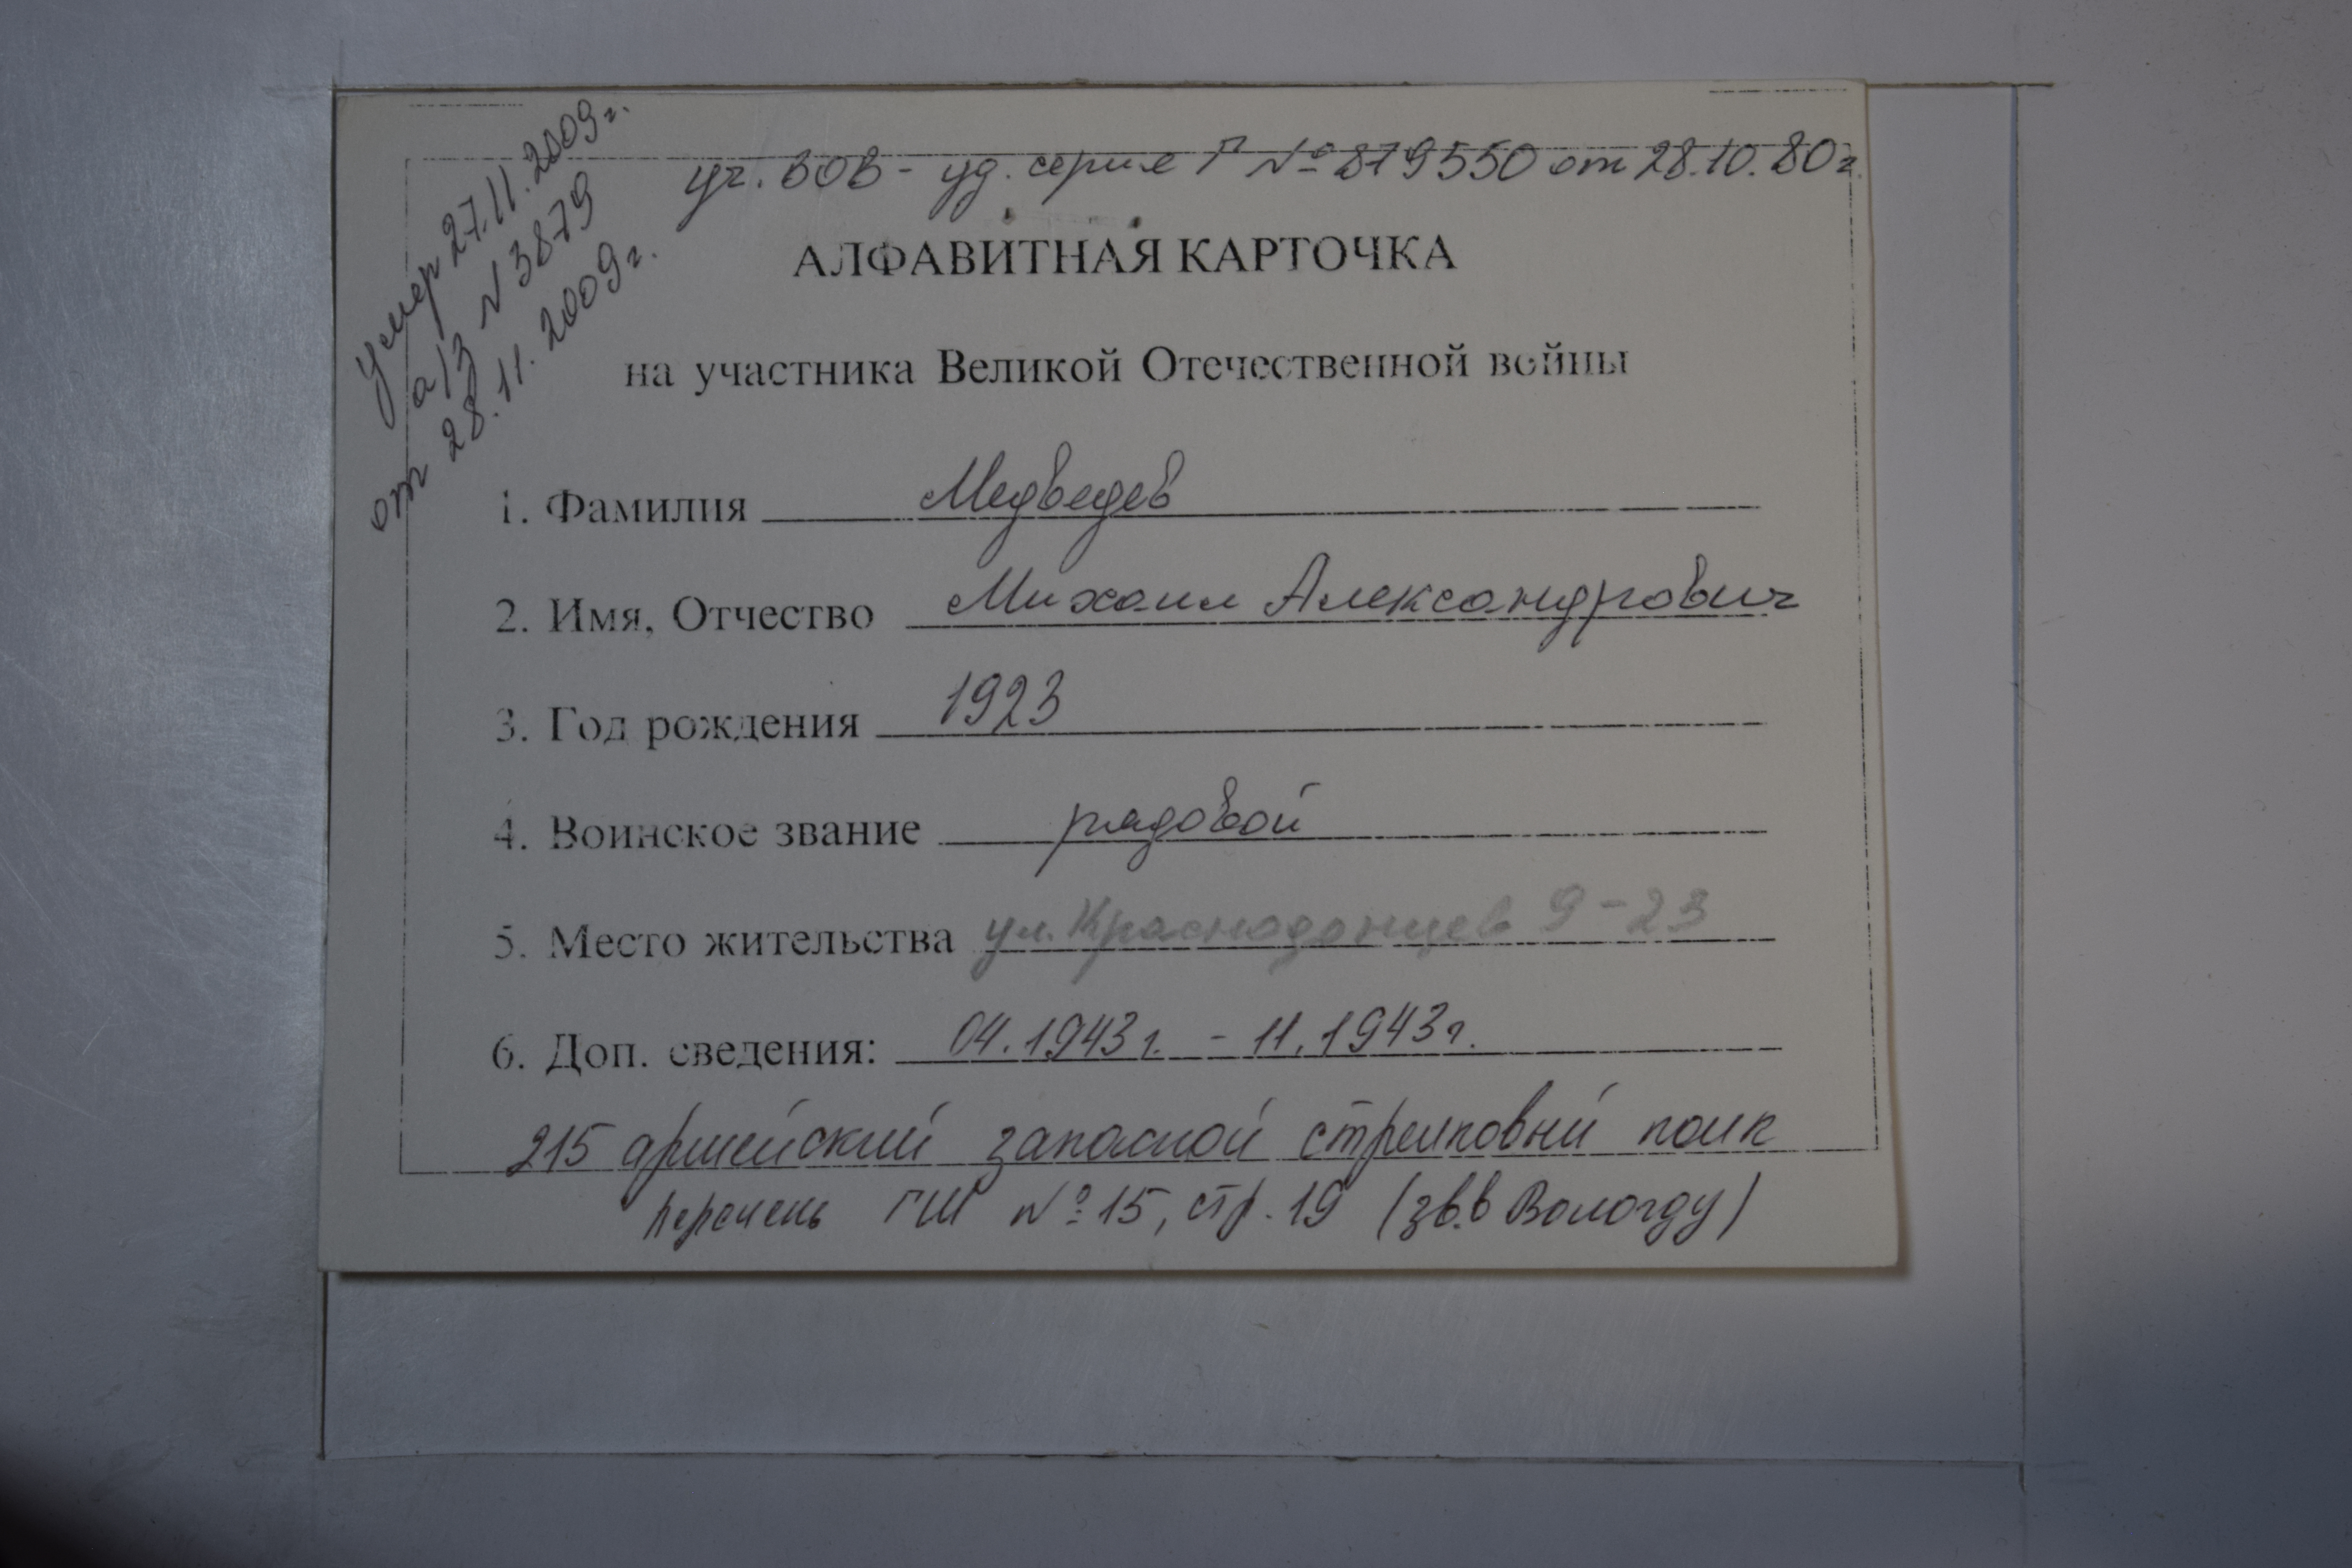 Умер 27.11.2009г.
а/з №3879
от 28.11.2009г.
уч. ВОВ - уд. серия Г № 879550 от 28.10.80г.
АЛФАВИТНАЯ КАРТОЧКА
на участника Великой Отечественной войны
1. Фамилия Медведев
2. Имя, Отчество Михаил Александрович
3. Год рождения 1923
4. Воинское звание рядовой
5. Место жительства ул. Краснодонцев 9-23
6. Доп. сведения: 04.1943г. - 11.1943г.
215 армейский запасной стрелковый полк
перечень ГШ № 15, стр. 19 (зв. в Вологду)